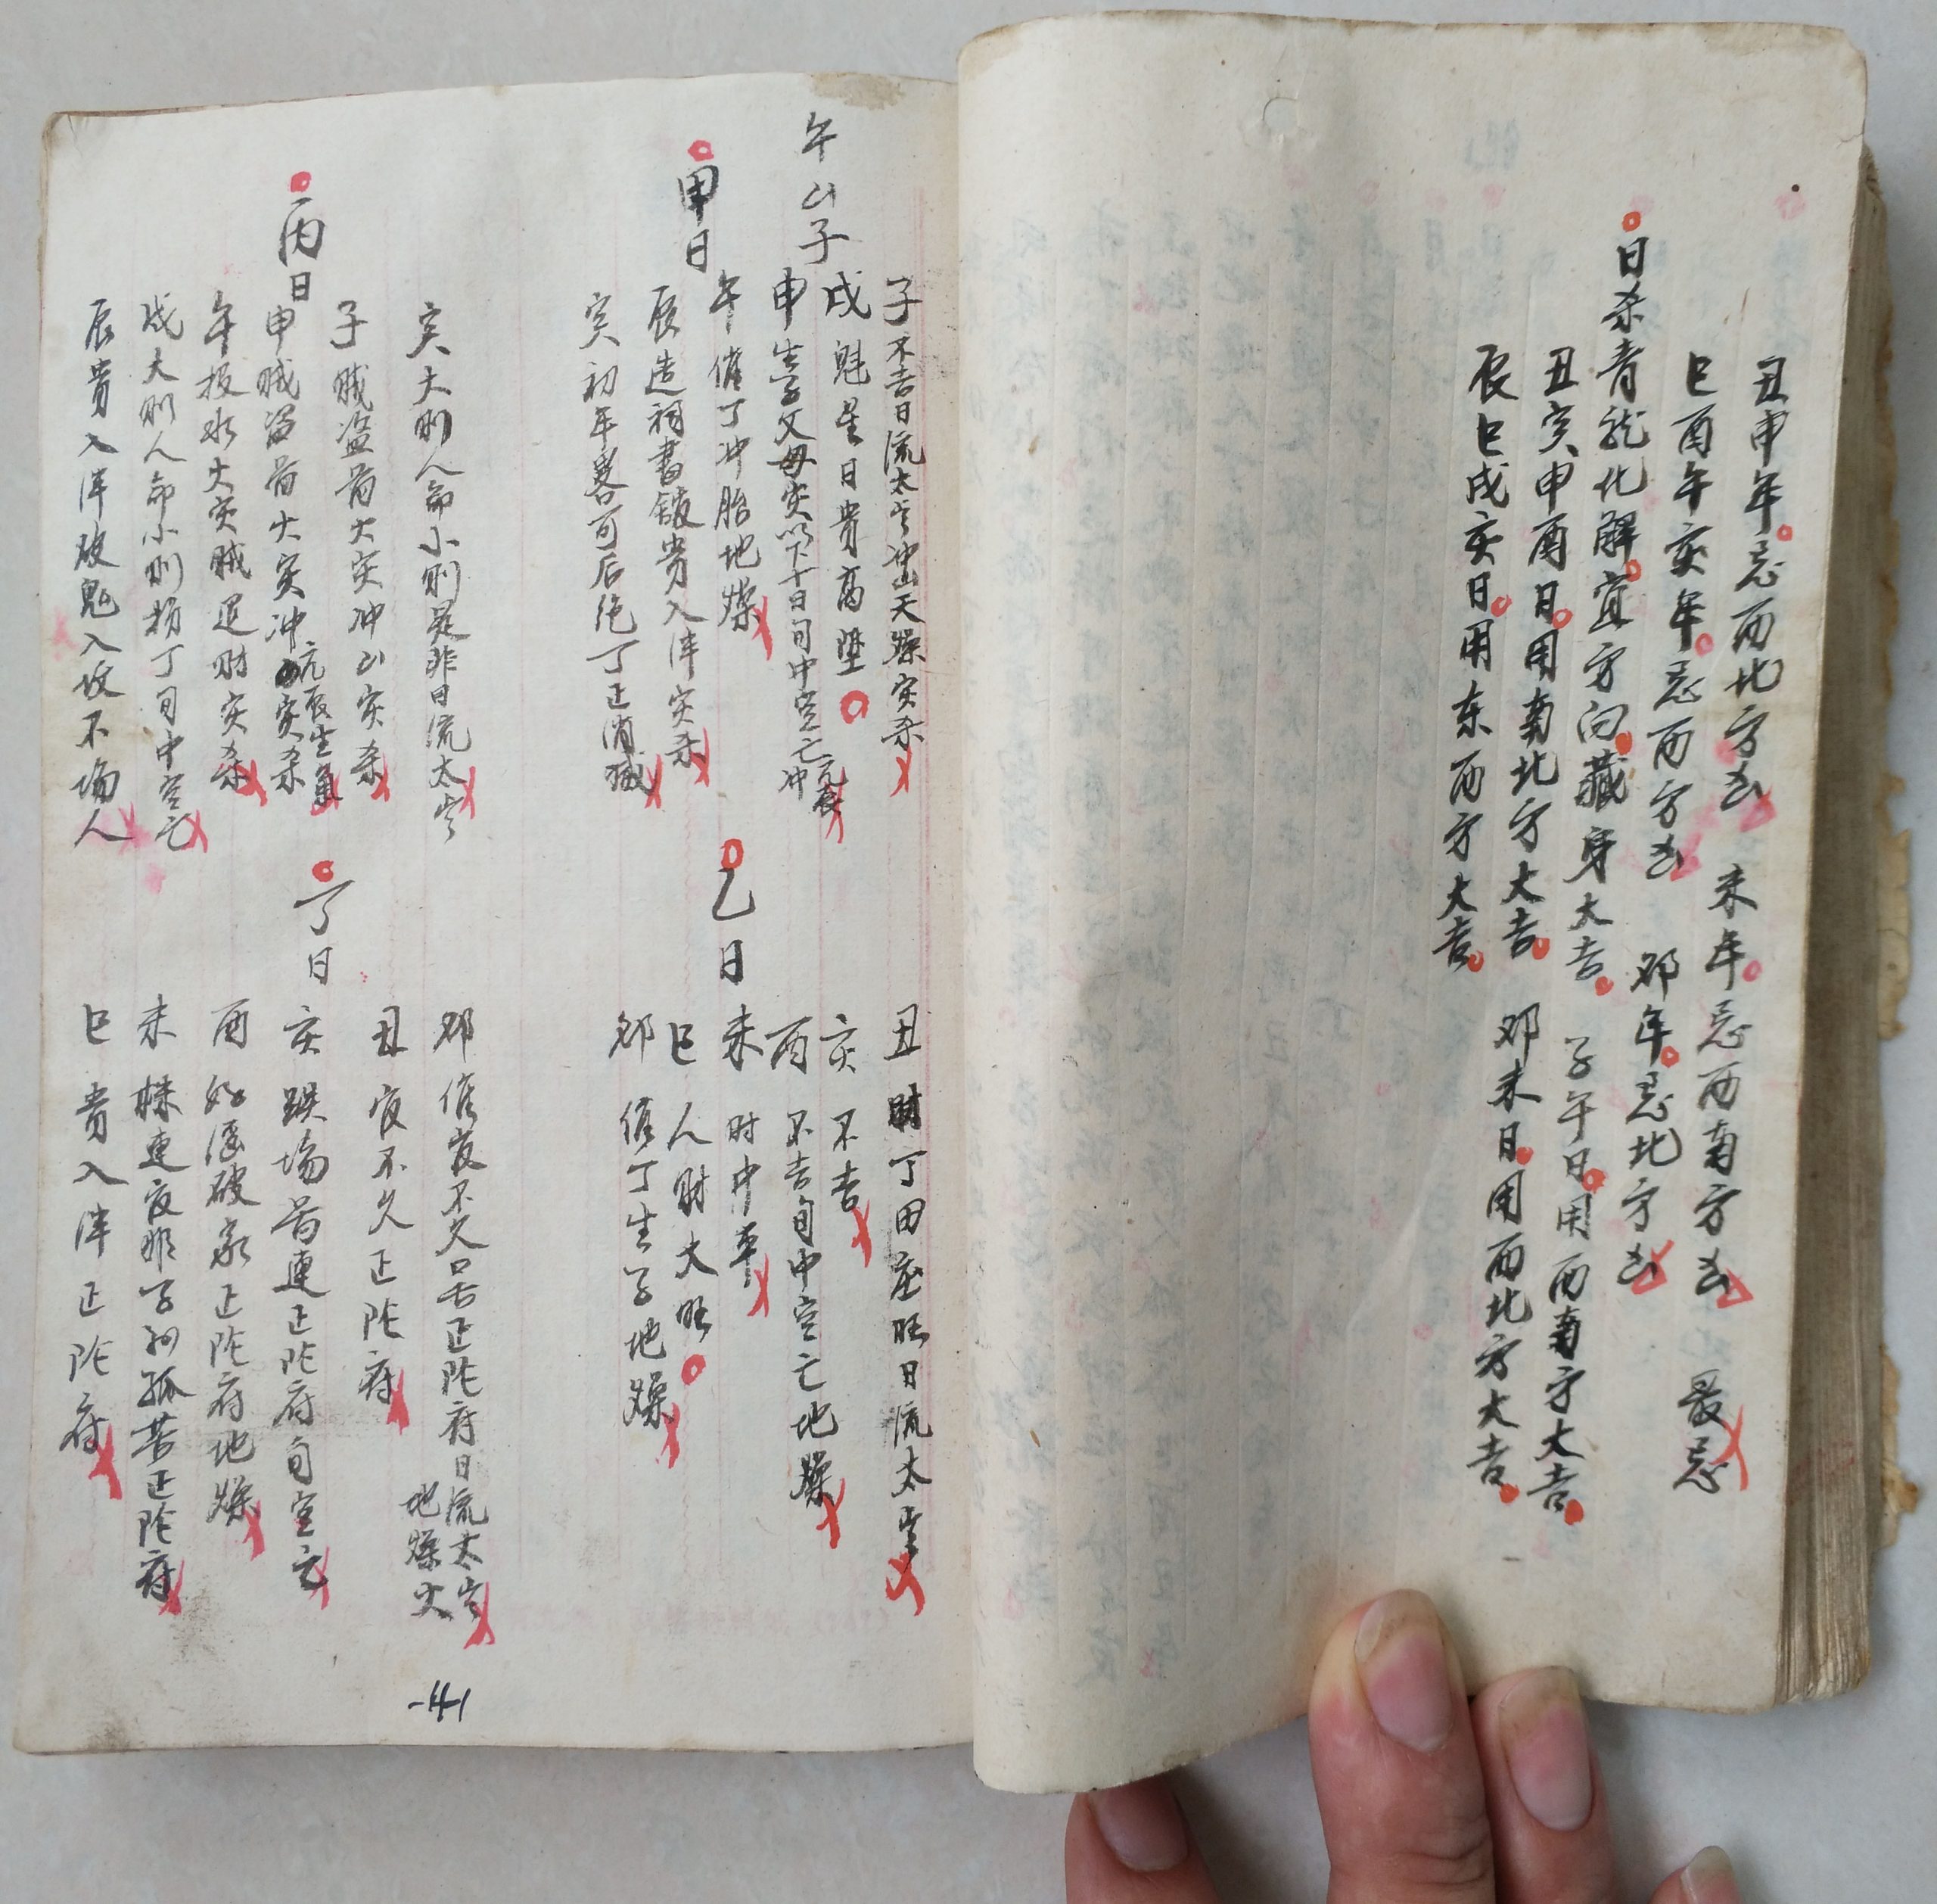 丑申年忌西北方凶 未年忌西南方凶 最忌
巳酉午亥年忌西方凶 卯年忌北方凶
日杀青龙化解宜方向藏身大吉 子午日用西南方大吉
丑寅申酉日用南北方大吉 卯未日用西北方大吉
辰巳戌亥日用东西方大吉
午山子
子不吉日流太岁冲山天燥寅杀
戌魁星日贵高坠
申生子父母实以下十日旬中空亡冲
甲日
午值丁冲胎地燥
辰造祠书馆贵入泮寅杀
寅初年婆可后绝丁正消灭
乙日
丑财丁田庄旺日流太岁
亥不吉
酉不吉旬中空亡地燥
未财中平
巳人财大旺
卯值丁生子地燥
寅大则人命小则是非日流太岁
子贼盗前大寅冲山寅杀
丙日
申贼盗前大寅冲寅杀
午投水大寅贼退财寅杀
戌大则人命小则损丁旬中空亡
辰贵入泮破鬼入坟不场人
卯值发不久口舌正阴府日流太岁
地燥火
丑发不久正阴府
丁日
亥跌场前连正阴府旬空亡
酉好淫破家正阴府地燥
未孤苦正阴府
巳贵入泮正阴府
-141